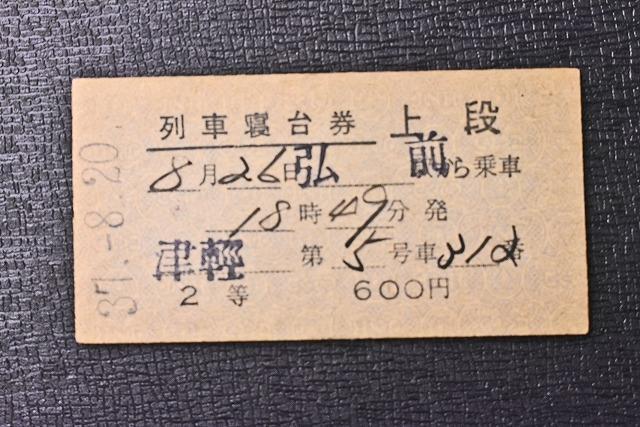 列車寝台券 上段
8月26日 弘前から乗車
18時49分発
津軽 第5号車
2等 600円
37.-8.20